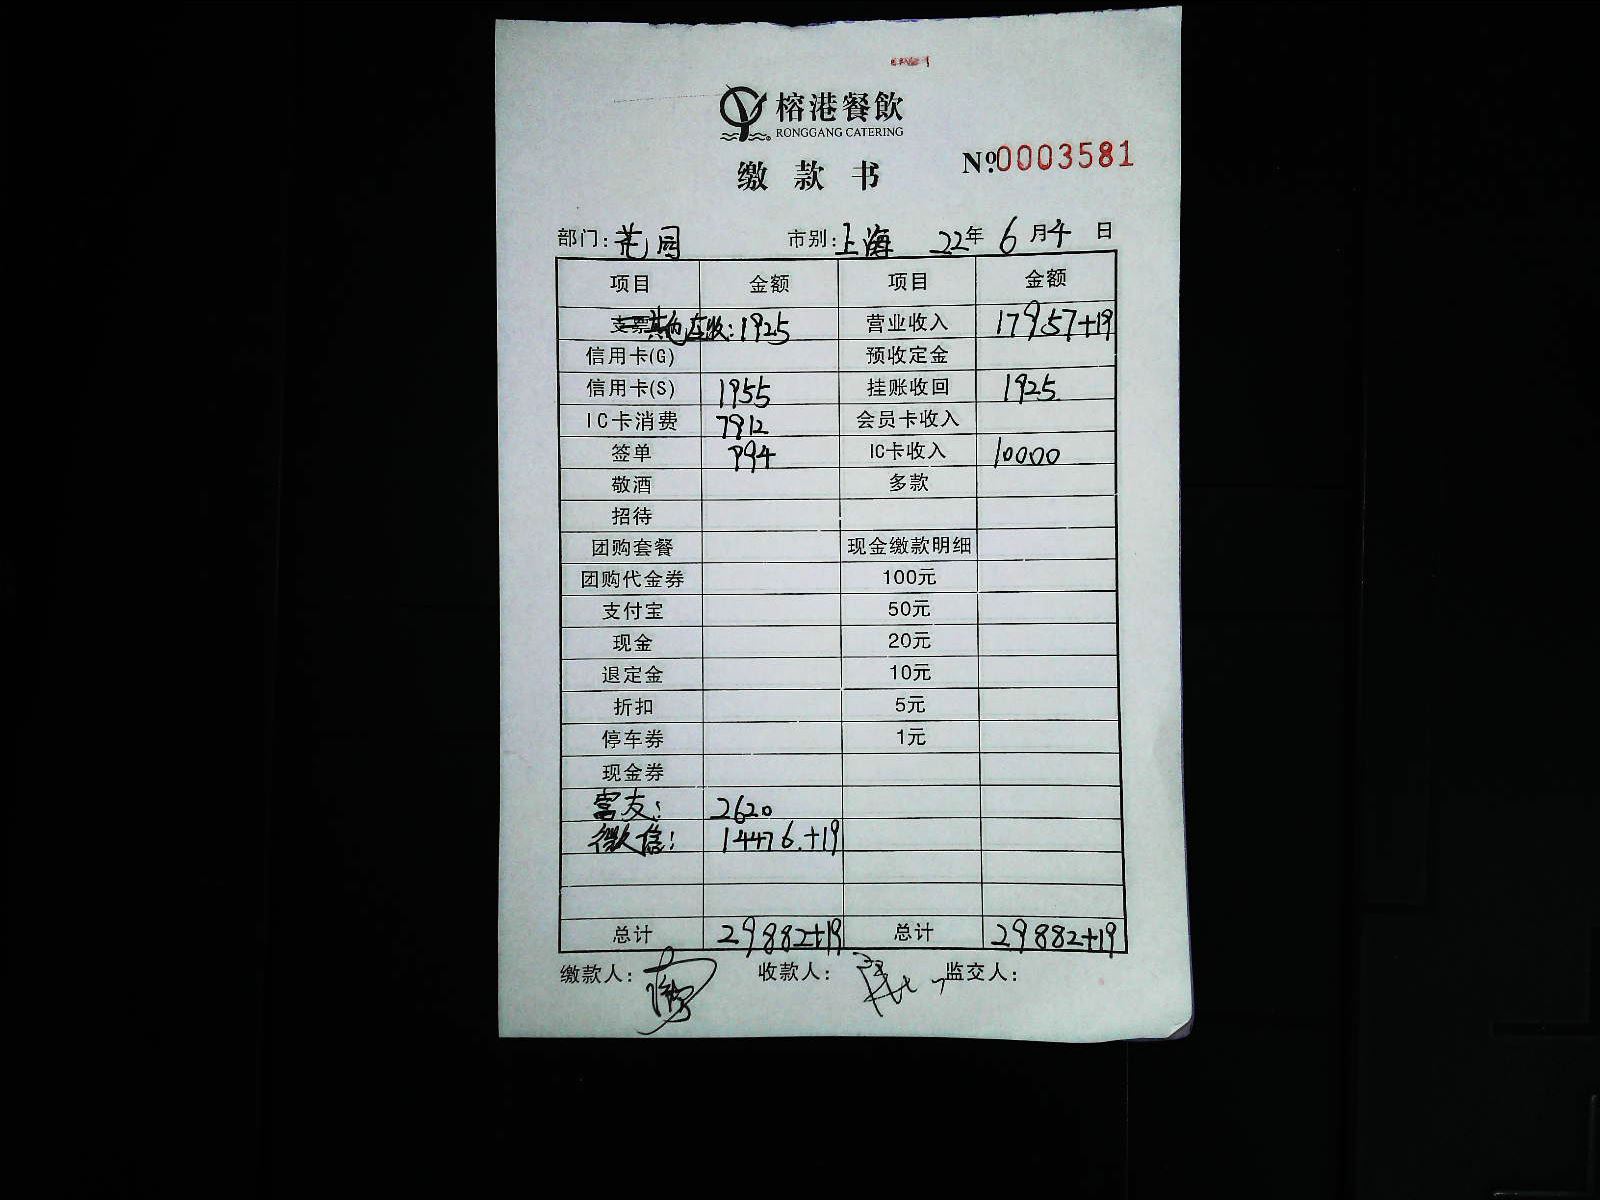 榕港餐飲
RONGGANG CATERING
缴款书
№:0003581
部门:花园 市别:上海 22年6月4日
项目 金额 项目 金额
支票 其他应收:1925 营业收入 17957+19
信用卡(G) 预收定金
信用卡(S) 1955 挂账收回 1925
IC卡消费 7912 会员卡收入
签单 994 IC卡收入 10000
敬酒 多款
招待
团购套餐 现金缴款明细
团购代金券 100元
支付宝 50元
现金 20元
退定金 10元
折扣 5元
停车券 1元
现金券
富友: 2620
微信: 14476.+19
总计 29882+19 总计 29882+19
缴款人: 收款人: 监交人: